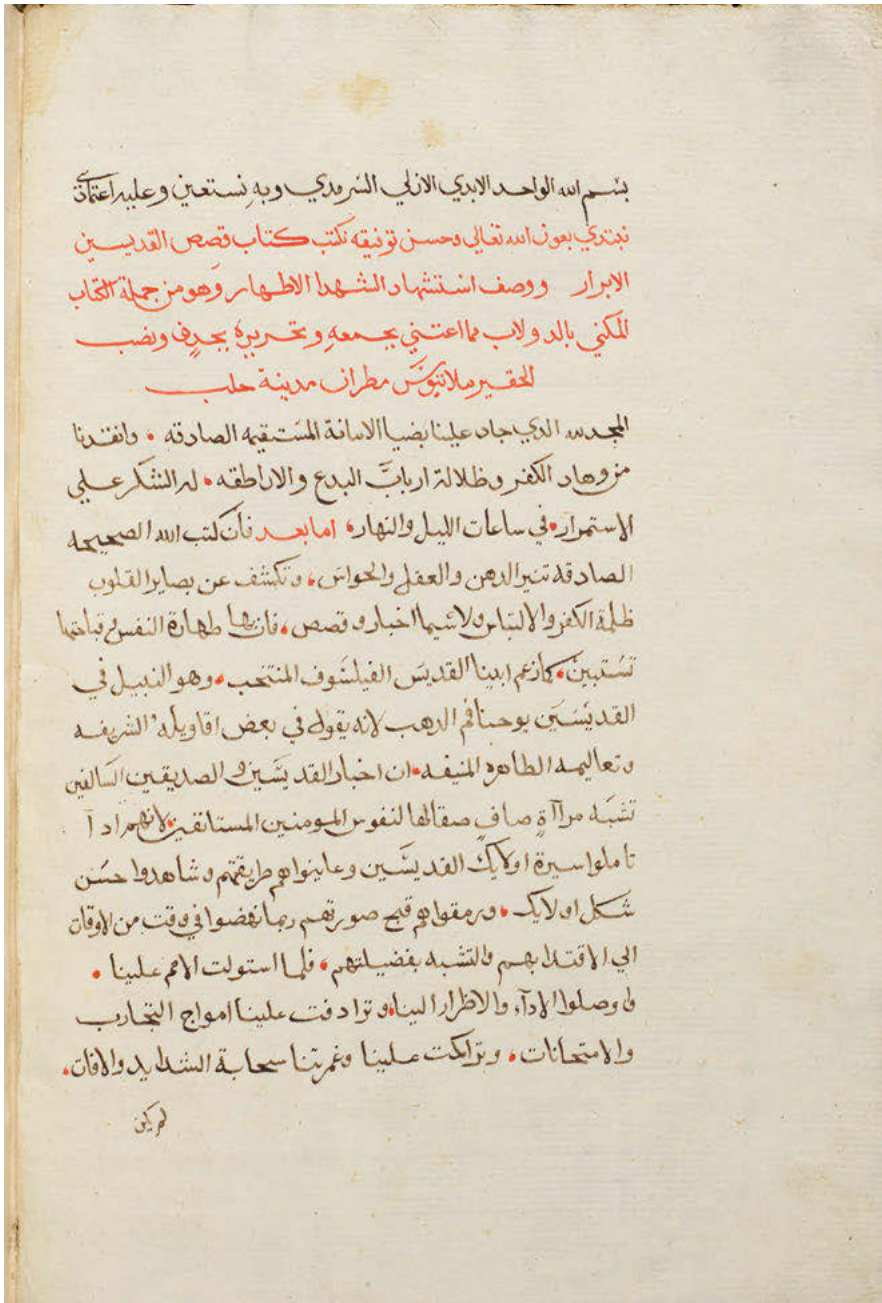 بسم الله الواحد الابدي الازلي السرمدي وبهِ نستعين وعليه اعتمادي
نبتدي بعون الله تعالي وحسن توفيقه نكتب كتاب قصص القديسين
الابرار ووصف استشهاد الشهدا الاطهار وهو من جملة الكتاب
المكني بالدولاب مما اعتني بجمعهِ وتحريرهِ بجدٍ ونصب
الحقير ملاتيوس مطران مدينة حلب
المجد لله الدي جاد علينا بضيا الامانة المستقيمه الصادقه • وانقدنا
من وهاد الكفر وظلالة ارباب البدع والاراطقه • له الشكر علي
الاستمرار • في ساعات الليل والنهار • اما بعد فان كتب الله الصحيحه
الصادقه تنير الدهن والعقل والحواس • وتكشف عن بصاير القلوب
ظلمة الكفر والالتباس ولاسيما اخبار وقصص • فان بها طهارة النفس وقباحتها
تستبين • كما زعم ابينا القديس الفيلسوف المنتخب • وهو النبيل في
القديسين يوحنا فم الدهب لانه يقول في بعض اقاويله الشريفه
وتعاليمه الطاهره المنيفه • ان اخبار القديسين والصديقين السالفين
تشبه مراآة صافٍ صقالها لنفوس المومنين المستانقين • لانهم ادآ
تاملوا سيرة اولايك القديسين وعاينوا هم طريقتهم وشاهدوا حسن
شكل اولايك • ورمقوا هم قبح صورتهم ربما نهضوا في وقت من الاوقات
الي الاقتدا بهم والتشبه بفضيلتهم • فلما استولت الامم علينا •
واوصلوا الادآء والاظرار الينا • وترادفت علينا امواج التجارب
والامتحانات • وتراكمت علينا وغمرتنا سحابة الشدايد والافات •
لم يكن